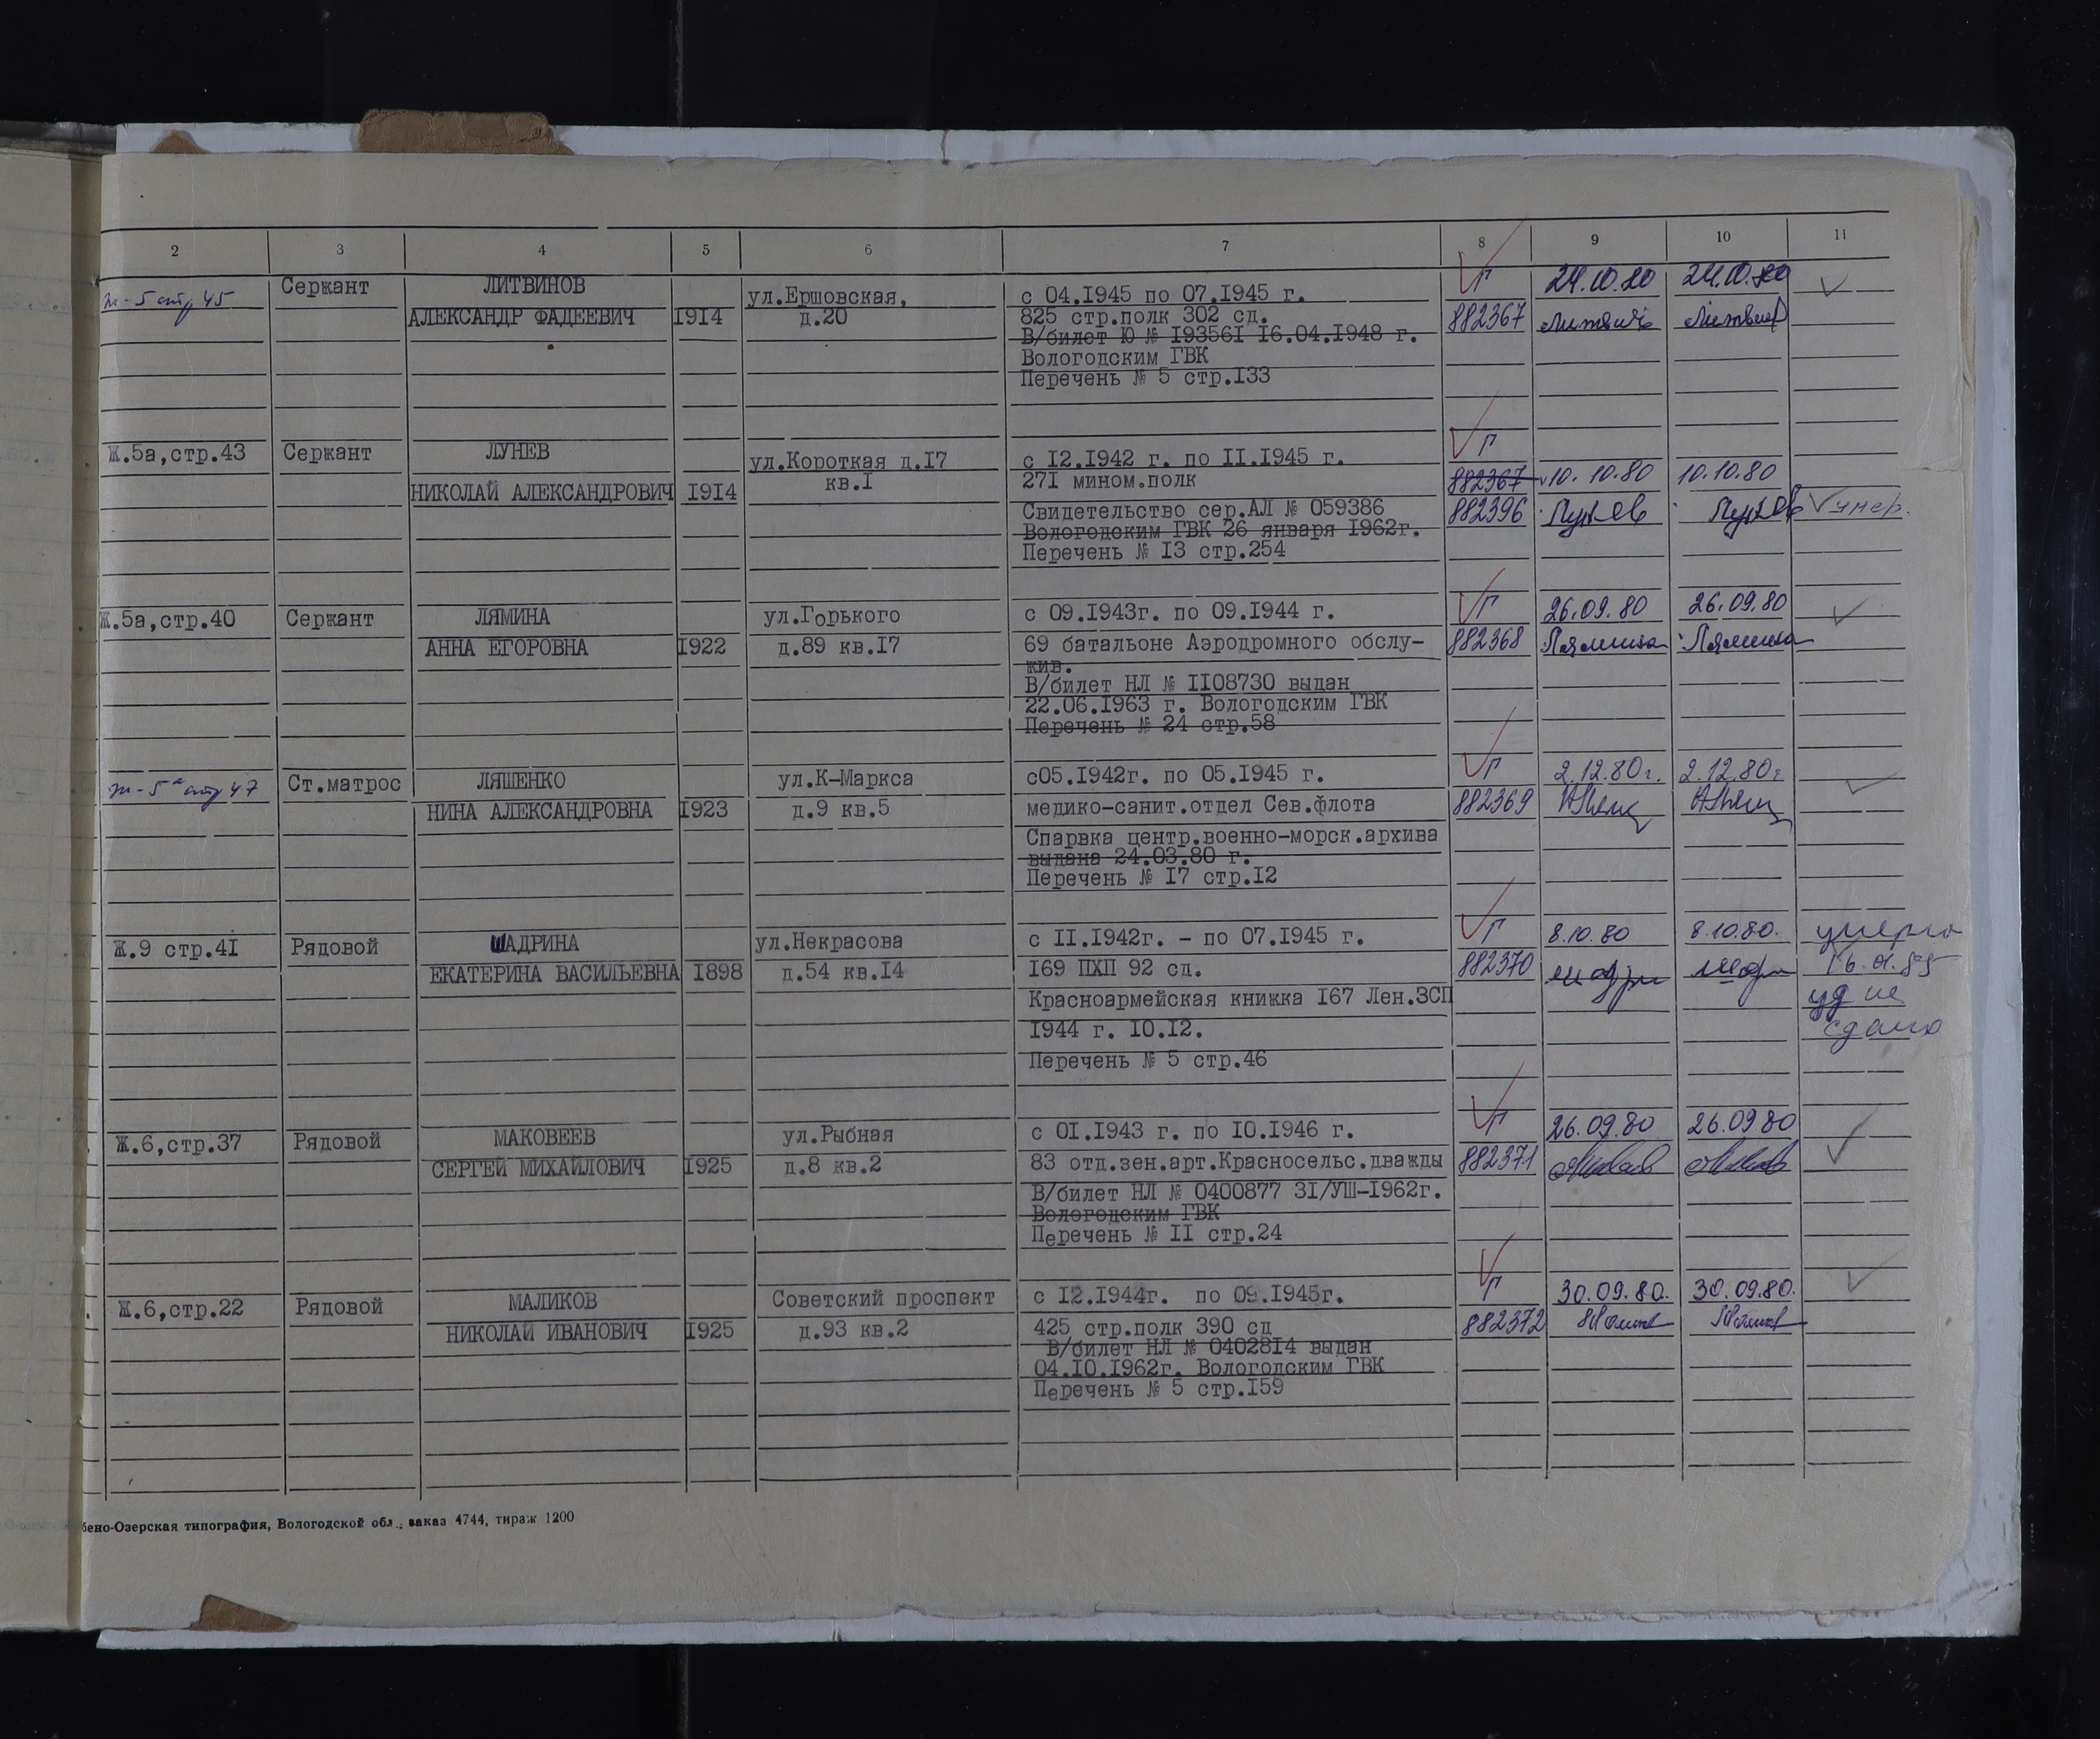 2 3 4 5 6 7 8 9 10 11
ж-5 стр 45 Сержант ЛИТВИНОВ ул.Ершовская, с 04.1945 по 07.1945 г. Г 24.10.80 24.10.80
АЛЕКСАНДР ФАДЕЕВИЧ 1914 д.20 825 стр.полк 302 сд. 882367
В/билет Ю № 193561 16.04.1948 г.
Вологодским ГВК
Перечень № 5 стр.133
Ж.5а,стр.43 Сержант ЛУНЕВ ул.Короткая д.17 с 12.1942 г. по 11.1945 г. Г
НИКОЛАЙ АЛЕКСАНДРОВИЧ 1914 кв.1 271 мином.полк 882367 10.10.80 10.10.80
Свидетельство сер.АЛ № 059386 882396 Лунев Лунев умер.
Вологодским ГВК 26 января 1962г.
Перечень № 13 стр.254
Ж.5а,стр.40 Сержант ЛЯМИНА ул.Горького с 09.1943г. по 09.1944 г. Г 26.09.80 26.09.80
АННА ЕГОРОВНА 1922 д.89 кв.17 69 батальоне Аэродромного обслу- 882368 Лямина Лямина
жив.
В/билет НЛ № 1108730 выдан
22.06.1963 г. Вологодским ГВК
Перечень № 24 стр.58
ж-5а стр 47 Ст.матрос ЛЯШЕНКО ул.К-Маркса с05.1942г. по 05.1945 г. Г 2.12.80г. 2.12.80г
НИНА АЛЕКСАНДРОВНА 1923 д.9 кв.5 медико-санит.отдел Сев.флота 882369
Спарвка центр.военно-морск.архива
выдана 24.03.80 г.
Перечень № 17 стр.12
Ж.9 стр.41 Рядовой ШАДРИНА ул.Некрасова с 11.1942г. - по 07.1945 г. Г 8.10.80 8.10.80. умерла
ЕКАТЕРИНА ВАСИЛЬЕВНА 1898 д.54 кв.14 169 ПХП 92 сд. 882370
Красноармейская книжка 167 Лен.ЗСП уд не
1944 г. 10.12. сдано
Перечень № 5 стр.46
Ж.6,стр.37 Рядовой МАКОВЕЕВ ул.Рыбная с 01.1943 г. по 10.1946 г. Г 26.09.80 26.09 80
СЕРГЕЙ МИХАЙЛОВИЧ 1925 д.8 кв.2 83 отд.зен.арт.Красносельс.дважды 882371
В/билет НЛ № 0400877 31/УШ-1962г.
Вологодским ГВК
Перечень № 11 стр.24
Ж.6,стр.22 Рядовой МАЛИКОВ Советский проспект с 12.1944г. по 09.1945г. Г 30.09.80. 30.09.80.
НИКОЛАЙ ИВАНОВИЧ 1925 д.93 кв.2 425 стр.полк 390 сд 882372
В/билет НЛ № 0402814 выдан
04.10.1962г. Вологодским ГВК
Перечень № 5 стр.159
бено-Озерская типография, Вологодской обл., заказ 4744, тираж 1200